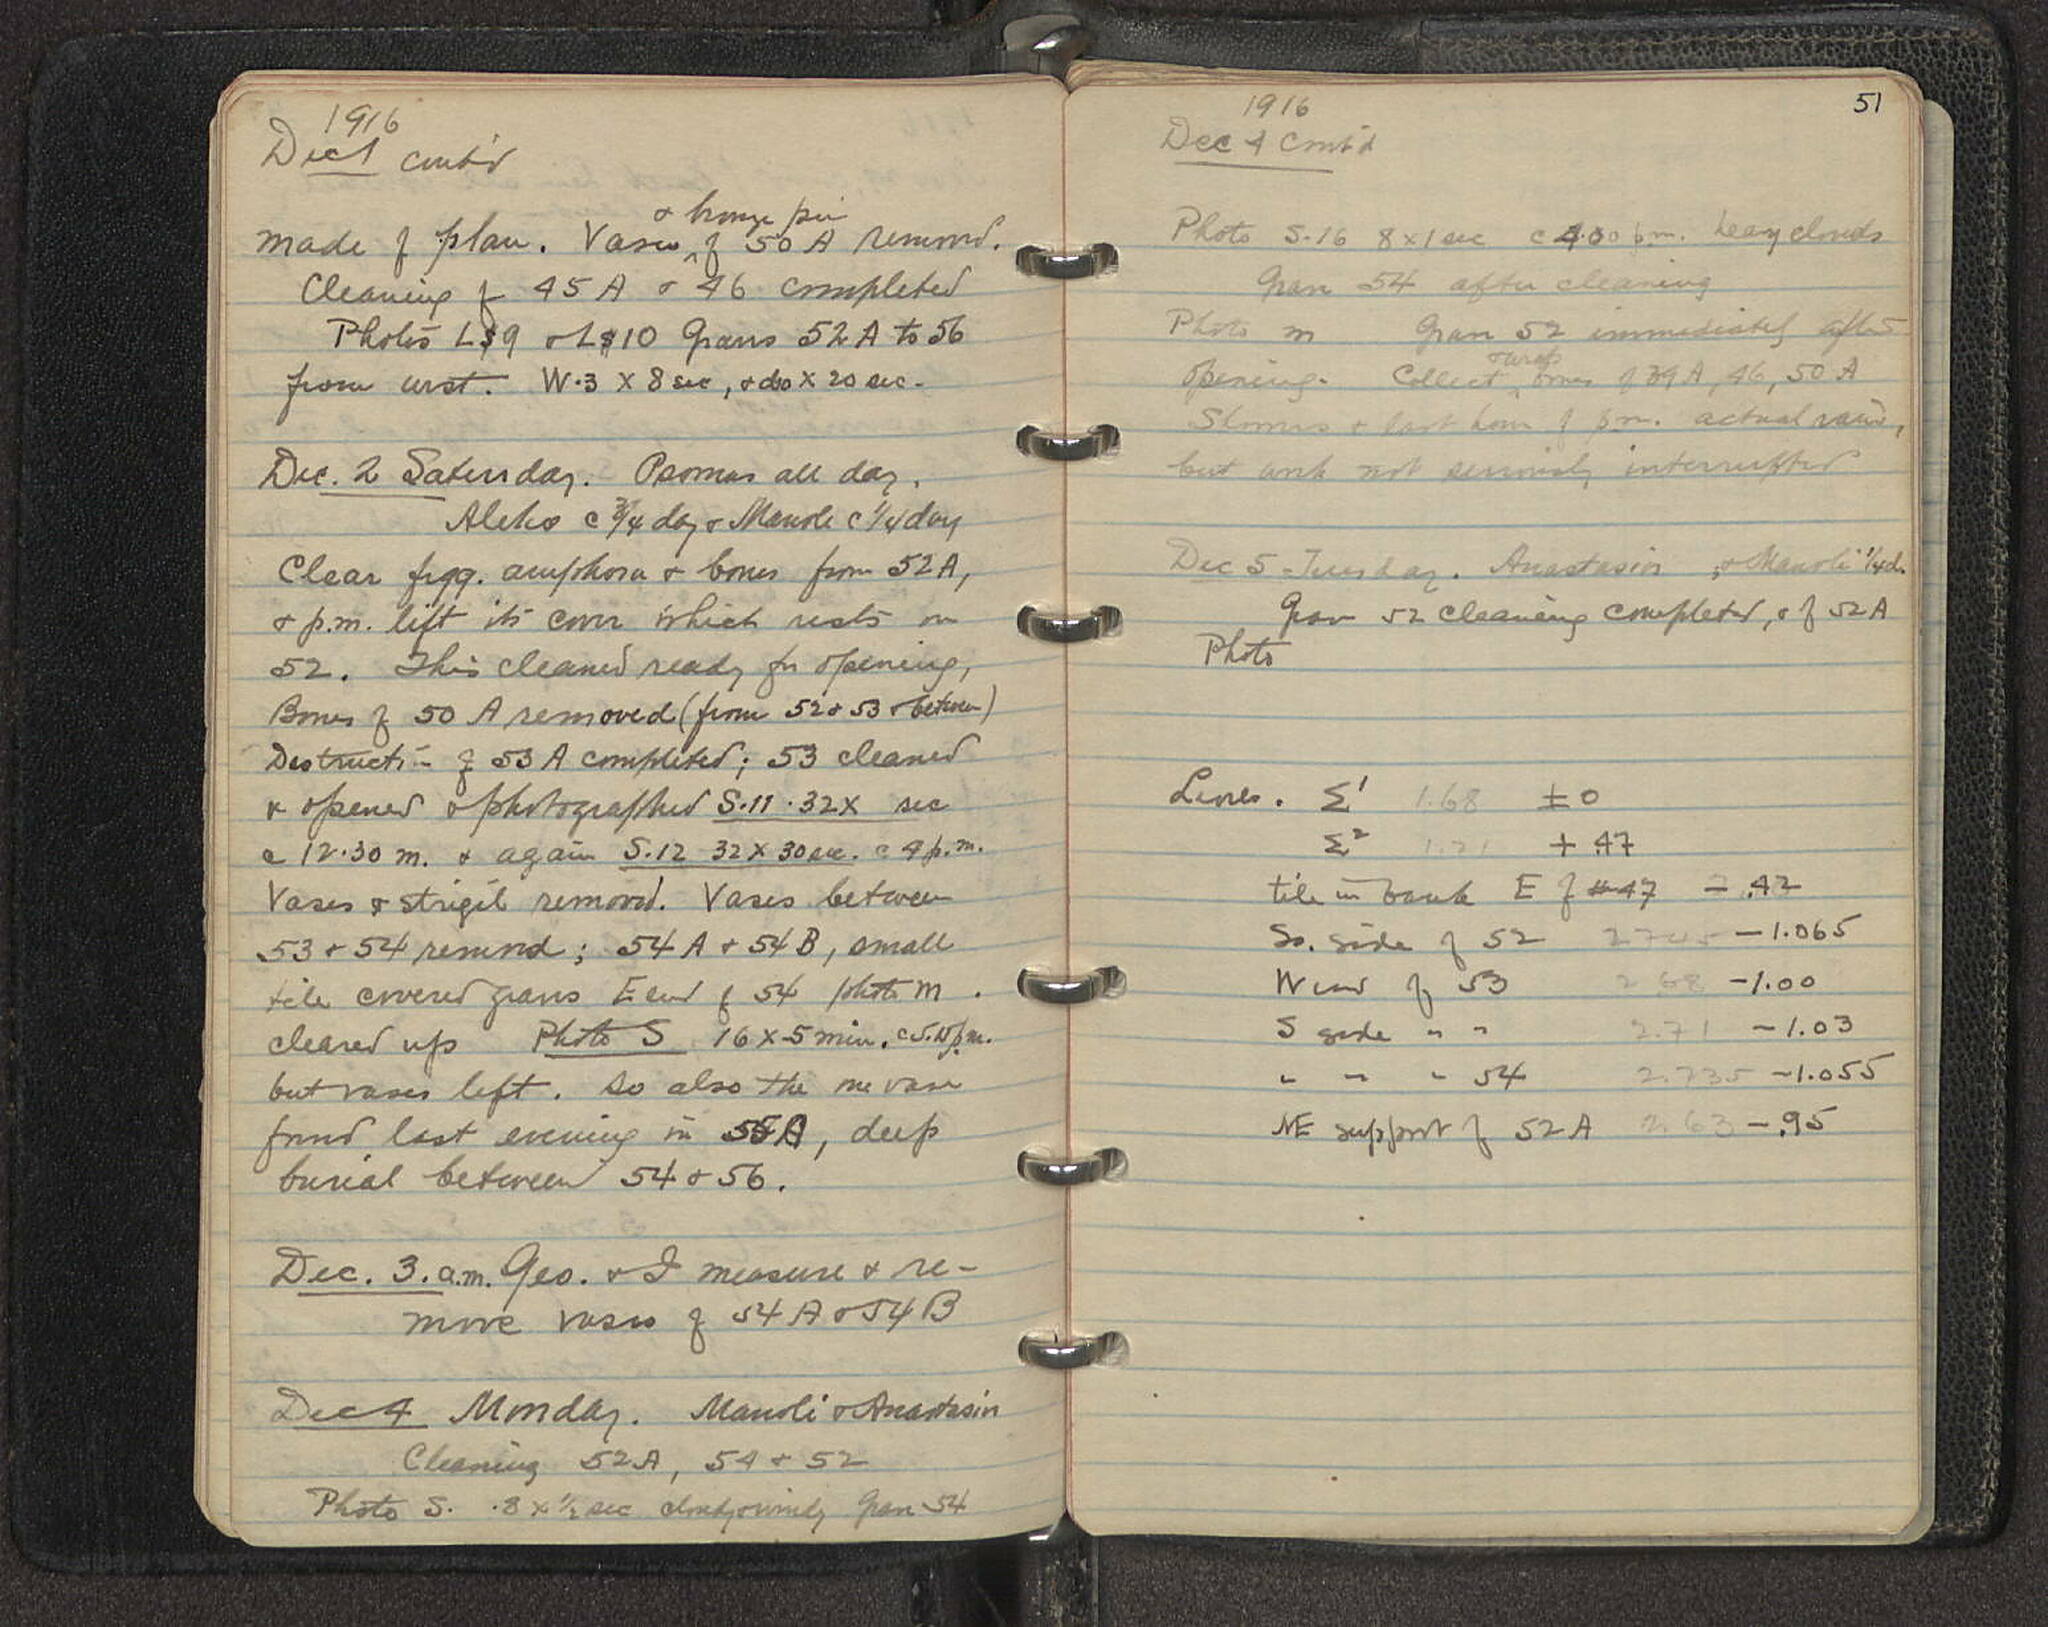 1916
Dec 1 cont'd
& bronze pin
made of plan. Vases of 50 A removed.
Cleaning of 45 A & 46 completed
Photos L$9 & L$10 Gravs 52 A to 56
from west. W.3 X 8 sec, & do X 20 sec.
Dec. 2 Saturday. Psomas all day.
Aleko c 3/4 day & Manole c 1/4 day
Clear frgg. amphora & bones from 52 A,
& p.m. lift its cover which rests on
52. This cleaned ready for opening,
Bones of 50 A removed (from 52 & 53 & between)
Destructi- of 53 A completed; 53 cleaned
& opened & photographed S.11 . 32 X sec
c 12.30 m. & again S.12 32 X 30 sec. c 4 p.m.
Vases & strigil removed. Vases between
53 & 54 removed; 54 A & 54 B, small
tile covered gravs E end of 54 photo m .
cleared up Photo S 16 X 5 min. p.m.
but vases left. So also the one vase
found last evening in A, deep
burial between 54 & 56.
Dec. 3. a.m. Geo. & I measure & re-
move vases of 54 A & 54 B
Dec 4 Monday. Manoli & Anastasin
Cleaning 52 A, 54 & 52
Photo S. .8 x 1/2 sec cloudy & windy Grav 54
1916
51
Dec 4 cont'd
Photo S.16 8 x 1 sec c 4.00 p.m. heavy clouds
Grav 54 after cleaning
Photo m Grav 52 immediately after
opening. Collect bones of 39 A, 46, 50 A
Showers & last hour of p.m. actual rain,
but work not seriously interrupted
Dec 5 - Tuesday. Anastasin & Manoli 1/4 d.
Grav 52 cleaning completed, & of 52 A
Photo
Levels. Σ¹ 1.68 ±0
Σ² 1.21 +.47
tile in bank E of 47 - .42
So. side of 52 2.745 -1.065
W end of 53 2.68 -1.00
S side " " 2.71 -1.03
" " " 54 2.735 -1.055
NE support of 52 A 2.63 -.95